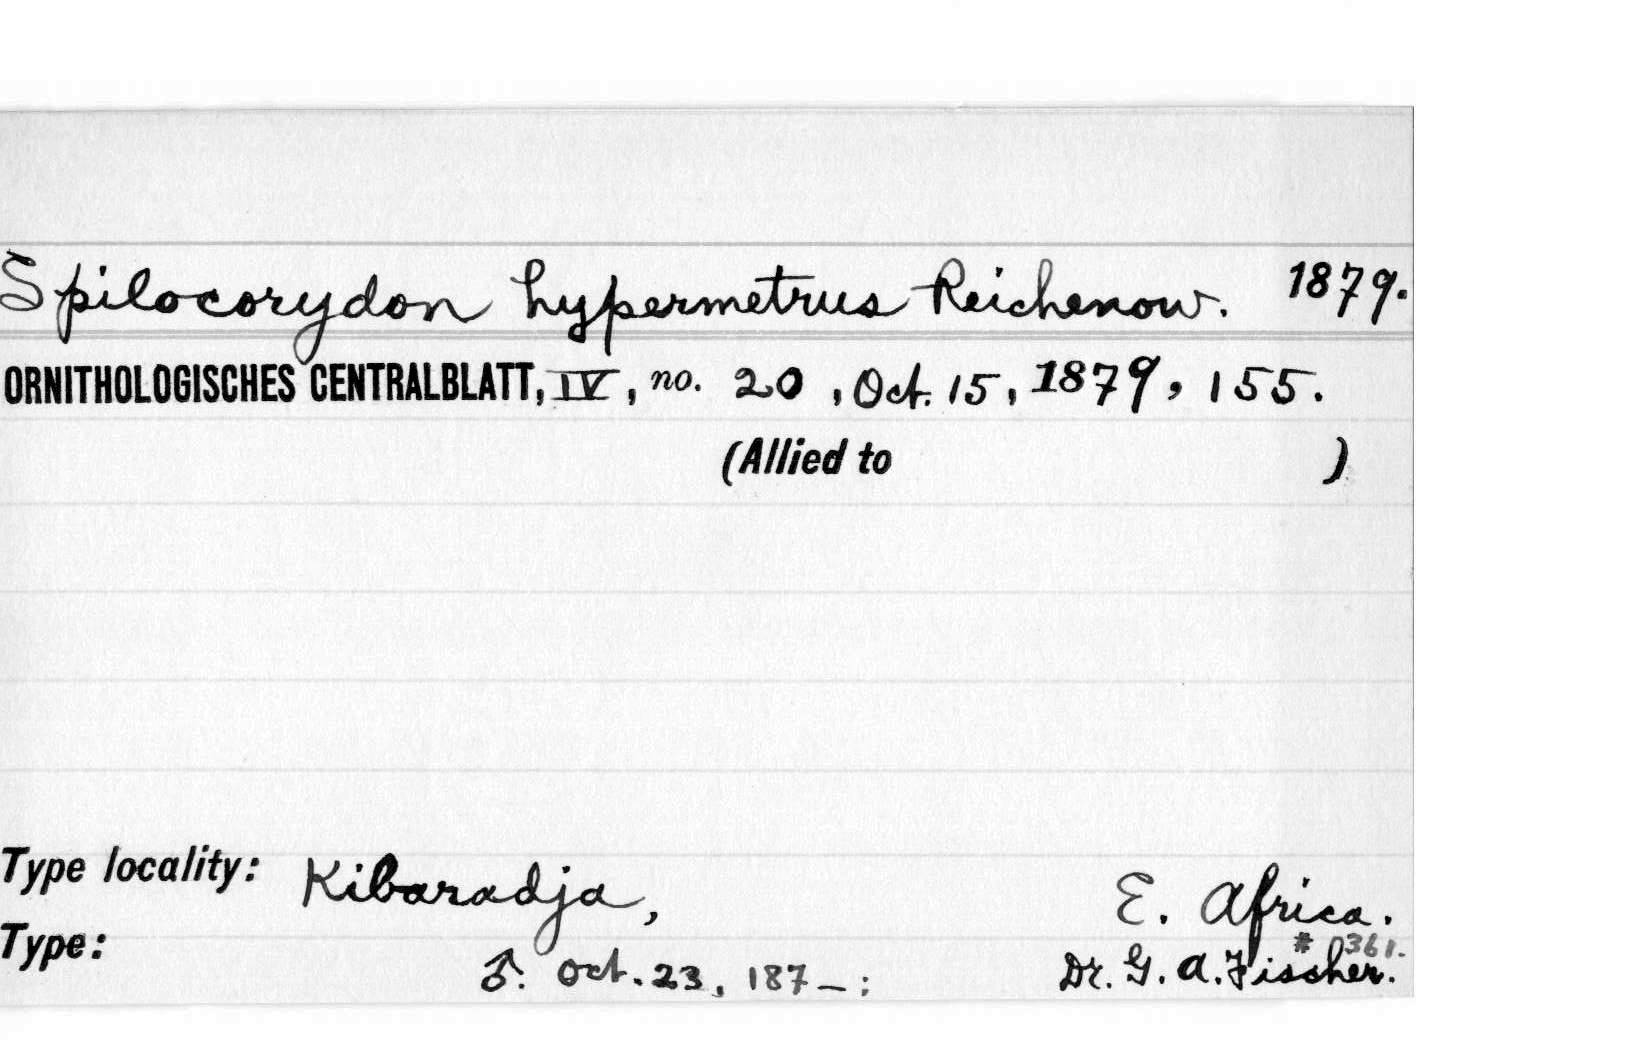 Spilocorydon hypermetrus Reichenow. 1879.
ORNITHOLOGISCHES CENTRALBLATT, IV, no. 20, Oct. 15, 1879, 155.
(Allied to )
Type locality: Kibaradja, E. Africa.
Type: # 361.
♂. Oct. 23, 187_: Dr. G. A. Fischer.